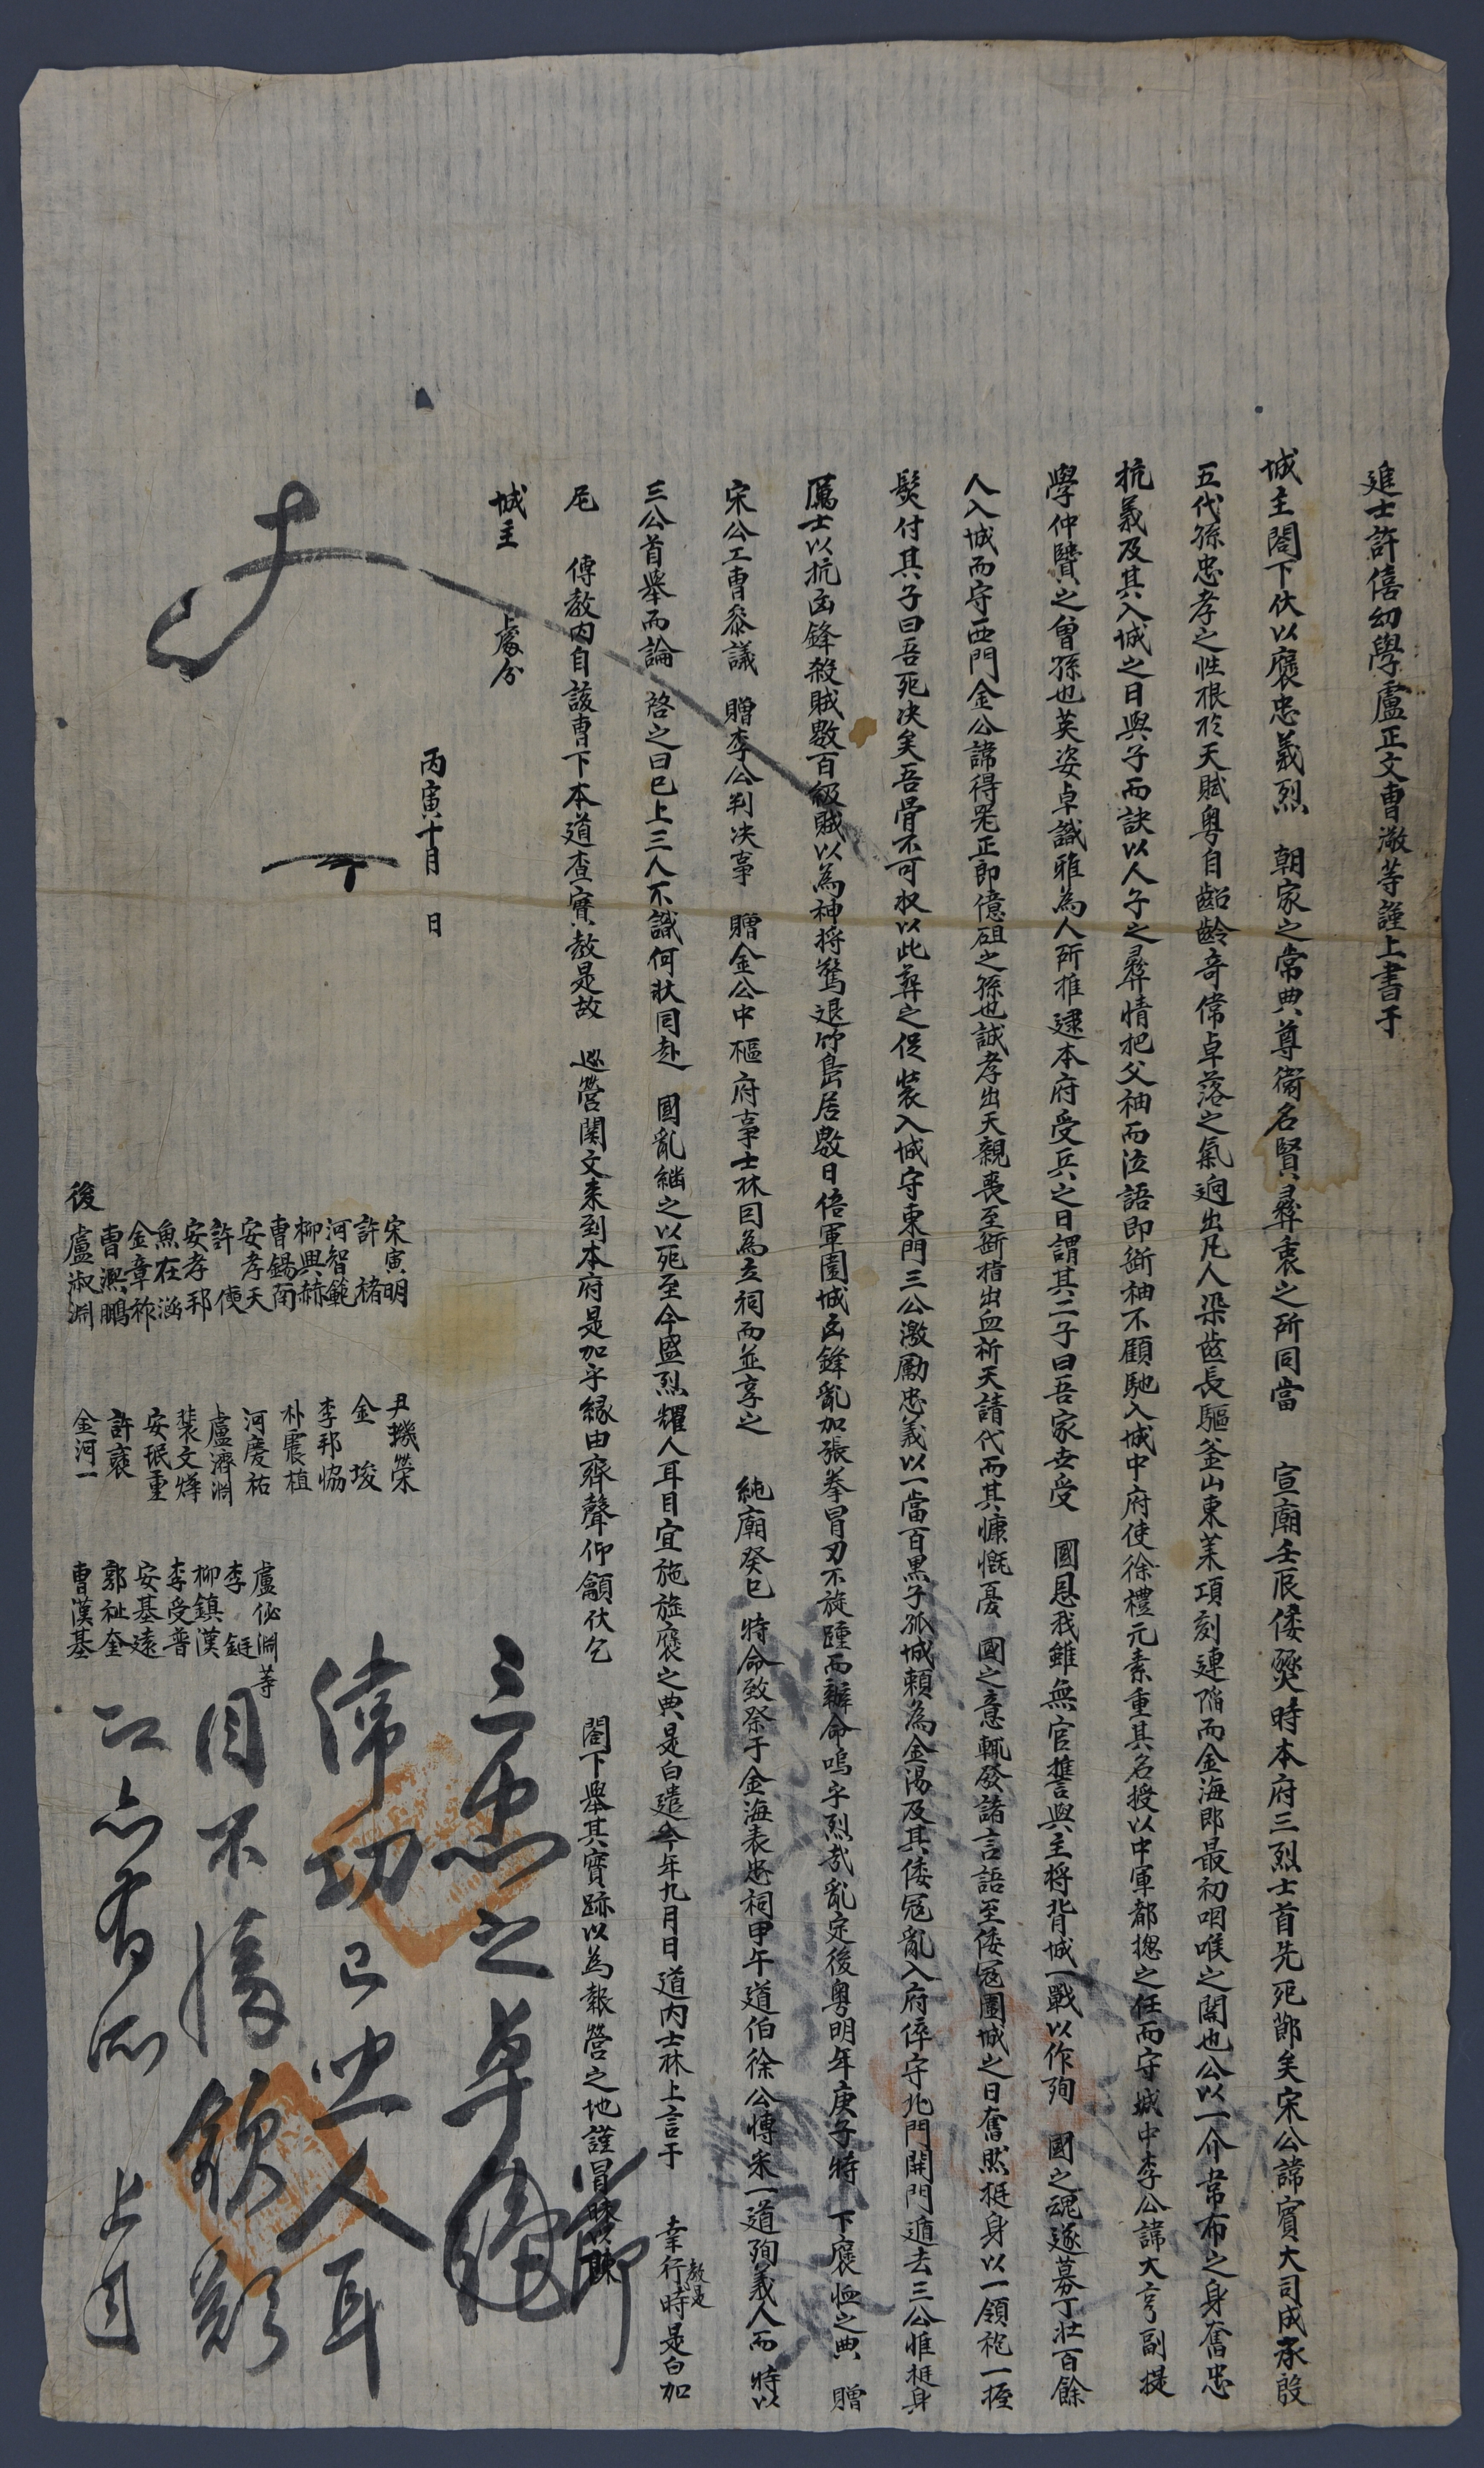 進士許僖幼學盧正文曺澈等謹上書于
城主閤下伏以褒忠義烈 朝家之常典尊衛名賢彛衷之所同當 宣廟壬辰倭燹時本府三烈士首先死節矣宋公諱賓大司成承殷
五代孫忠孝之性根於天賦粤自齠齡竒偉卓落之氣逈出凡人染齒長驅釜山東萊項刻連陷而金海郎最初咽喉之關也公以一介韋布之身奮忠
抗義及其入城之日與子而訣以人子之彛情把父袖而泣語即斷袖不顧馳入城中府使徐禮元素重其名授以中軍都摠之任而守城中李公諱大亨副提
學仲贒之曾孫也英姿卓識雅為人所推逮本府受兵之日謂其二子曰吾家世受 國恩我雖無官誓與主將背城一戰以作殉 國之魂遂募丁壯百餘
人入城而守西門金公諱得器正郎億䃊之孫也誠孝出天親喪至斷指出血祈天請代而其慷慨憂 國之意輒發諸言語至倭冦圍城之日奮然挺身以一領袍一握
髮付其子曰吾死决矣吾骨不可収以此葬之促裝入城守東門三公激勵忠義以一當百黑子孤城賴為金湯及其倭冦亂入府倅守北門開門遁去三公惟挺身
厲士以抗凶鋒殺賊數百級賊以為神將驚退竹島居數日倍軍圍城凶鋒亂加張拳冒刃不旋踵而辦命嗚乎烈哉亂定後粤明年庚子特 下褒恤之典 贈
宋公工曺叅議 贈李公判决事 贈金公中樞府事士林因為立祠而並享之 純廟癸巳 特命致祭于金海表忠祠甲午道伯徐公愽采一道殉義人而 特以
三公首擧而論 啓之曰已上三人不識何狀同赴 國亂継之以死至今盛烈耀人耳目宜施旌褒之典是白遣今年九月日道内士林上言于 幸行時教是是白加
尼 傳教内自該曺下本道查實教是故 巡營関文来到本府是加乎緣由齊聲仰籲伏乞 閤下擧其實跡以為報營之地謹冒昧以陳
城主 處分
丙寅十月 日
宋寅明
許楮
河智範
柳興赫
曺錫南
安孝天
許㑀
安孝邦
魚在涵
金章祚
曺凞鵬
後盧淑淵
尹璣榮
金埈
李邦協
朴震植
河慶祐
盧濟淵
裴文燁
安珉重
許褏
金河一
盧佖淵等
李鋌
柳鎮漢
李受普
安基遠
郭祉奎
曺漢基
三忠之卓節
偉功已照人耳
目不勝欽歎